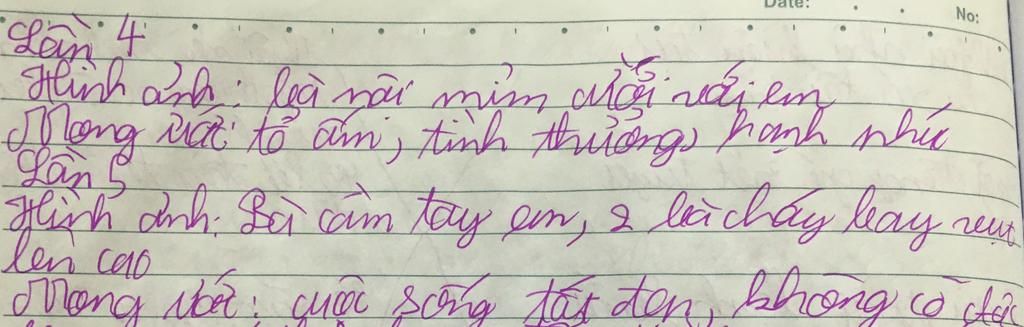 Date:
No:
Lần 4
Hình ảnh: bà nội mỉm cười với em
Mong ước: tổ ấm, tình thương, hạnh phúc
Lần 5
Hình ảnh: Bà cầm tay em, 2 bà cháu bay vụt
lên cao
Mong ước: cuộc sống tốt đẹp, không có